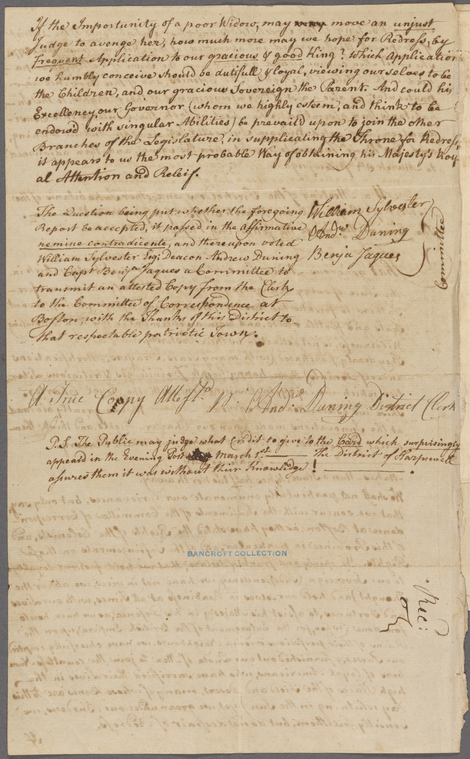 If the Importunity of a poor Widow, may move an unjust
Judge to avenge her, how much more may we hope for Redress, by
Frequent Application to our gracious & good King? Which Application
we humbly conceive should be dutifull & loyal, viewing ourselves to be
the Children, and our gracious Sovereign the Parent. And could his
Excellency our Governor (whom we highly esteem, and think to be
endow'd with singular Abilities) be prevaild upon to join the other
Branches of the Legislature, in supplicating the Throne for Redress,
it appears to us the most probable Way of obtaining his Majesty's Roy-
al Attention and Releif.
The Question being put whether the foregoing
Report be accepted, it passed in the affirmative
nemine contradicente, and thereupon voted
William Sylvester Esq: Deacon Andrew Duning
and Capt Benja Jaques a Committee to
transmit an attested Copy from the Clerk
to the Committee of Correspondence at
Boston, with the Thanks of this District to
that respectable patriotic Town.
William Sylvester
Andw. Duning
Benja Jaques
Committee
A True Coppy Attestd. Pr. Andw. Duning District Clerk
P.S. The Public may judge what credit to give to the Card which surprisingly
appeard in the Evening Post March 1st The District of Harpswell
assures them it was without their Knowledge!
BANCROFT COLLECTION
Rec: